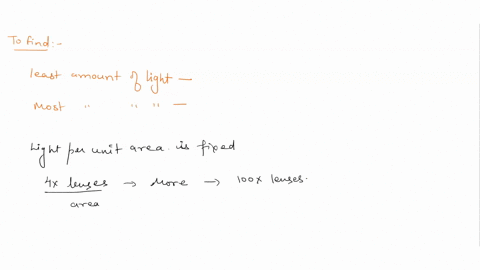 To find:-
least amount of light —
most " " " —
Light per unit area is fixed
4x lenses → More → 100x lenses.
area